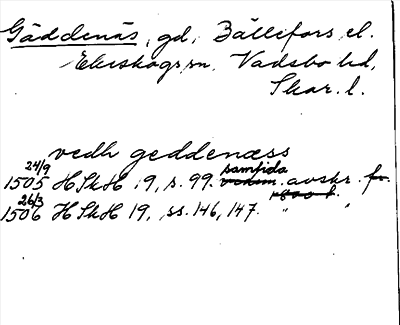 Gäddenäs, gd, Bällefors, el.
Ekeskogs sn, Vadsbo hd,
Skar. l.
vedh geddenæss
24/9 samtida
1505 HSkH 19, s. 99. avskr. fr.
26/3
1506 HSkH 19, ss. 146, 147. " "